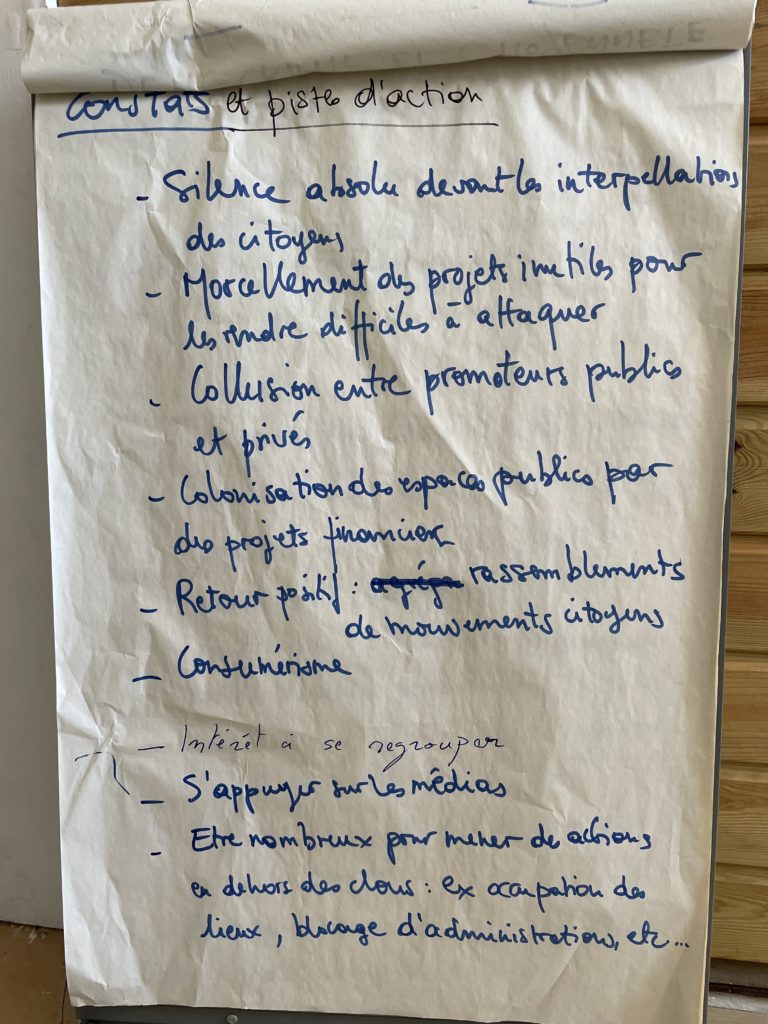 Constats et pistes d'action
- Silence absolu devant les interpellations
des citoyens
- Morcellement des projets inutiles pour
les rendre difficiles à attaquer
- Collusion entre promoteurs publics
et privés
- Colonisation des espaces publics par
des projets financiers
- Retour positif : rassemblements
de mouvements citoyens
- Consumérisme
- Intérêt à se regrouper
- S'appuyer sur les médias
- Etre nombreux pour mener des actions
en dehors des clous : ex occupation des
lieux, blocage d'administrations, etc...